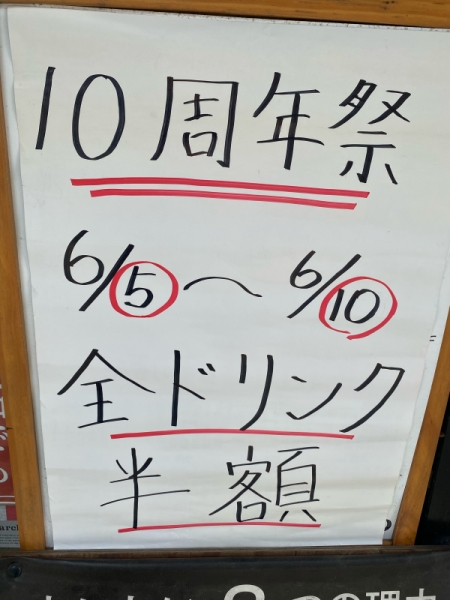 10周年祭
6/5〜6/10
全ドリンク
半額
の理由